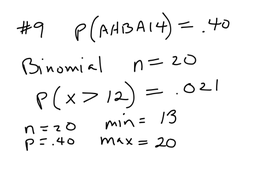 #9 P(AHBA14) = .40
Binomial n = 20
P(x > 12) = .021
n = 20 min = 13
P = .40 max = 20